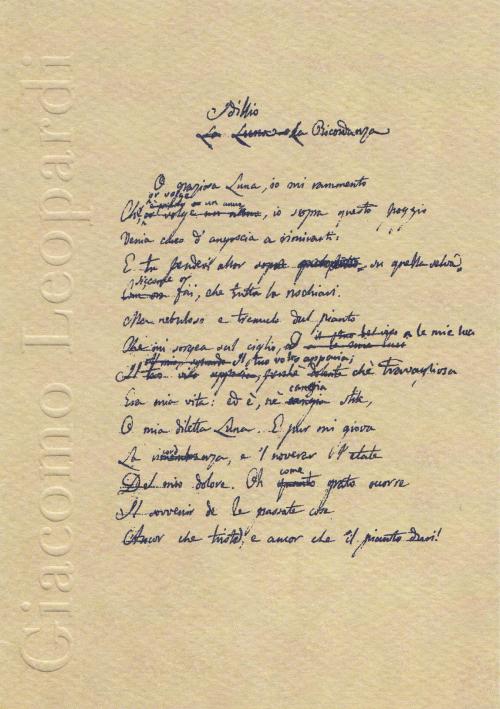 Giacomo Leopardi
Idillio
La Luna o la Ricordanza
O graziosa Luna, io mi rammento
or volge un anno
Che, è presso or volge un anno, io sopra questo poggio
Venia carco d'angoscia a rimirarti:
E tu pendevi allor sopra su quella selva
Siccome or
fai, che tutta la rischiari.
Ma nebuloso e tremulo dal pianto
Che mi sorgea sul ciglio, a le mie luci
Il tuo volto apparia;
Il tuo viso apparia, perchè chè travagliosa
cangia
Era mia vita: ed è, nè cangia stile,
O mia diletta Luna. E pur mi giova
cord
La rimembranza, e 'l noverar l'etate
come
Del mio dolore. Oh quanto grato occorre
Il sovvenir de le passate cose
Ancor che triste, e ancor che il pianto duri!